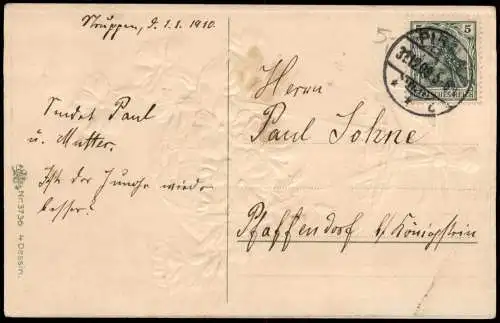 Struppen, d. 1.1. 1910.
Sendet Paul
u. Mutter.
Ist der Junge wieder
besser?
Herrn
Paul Sohne
Pfaffendorf b/ Königstein
5
Nr. 3736 4 Dessin.